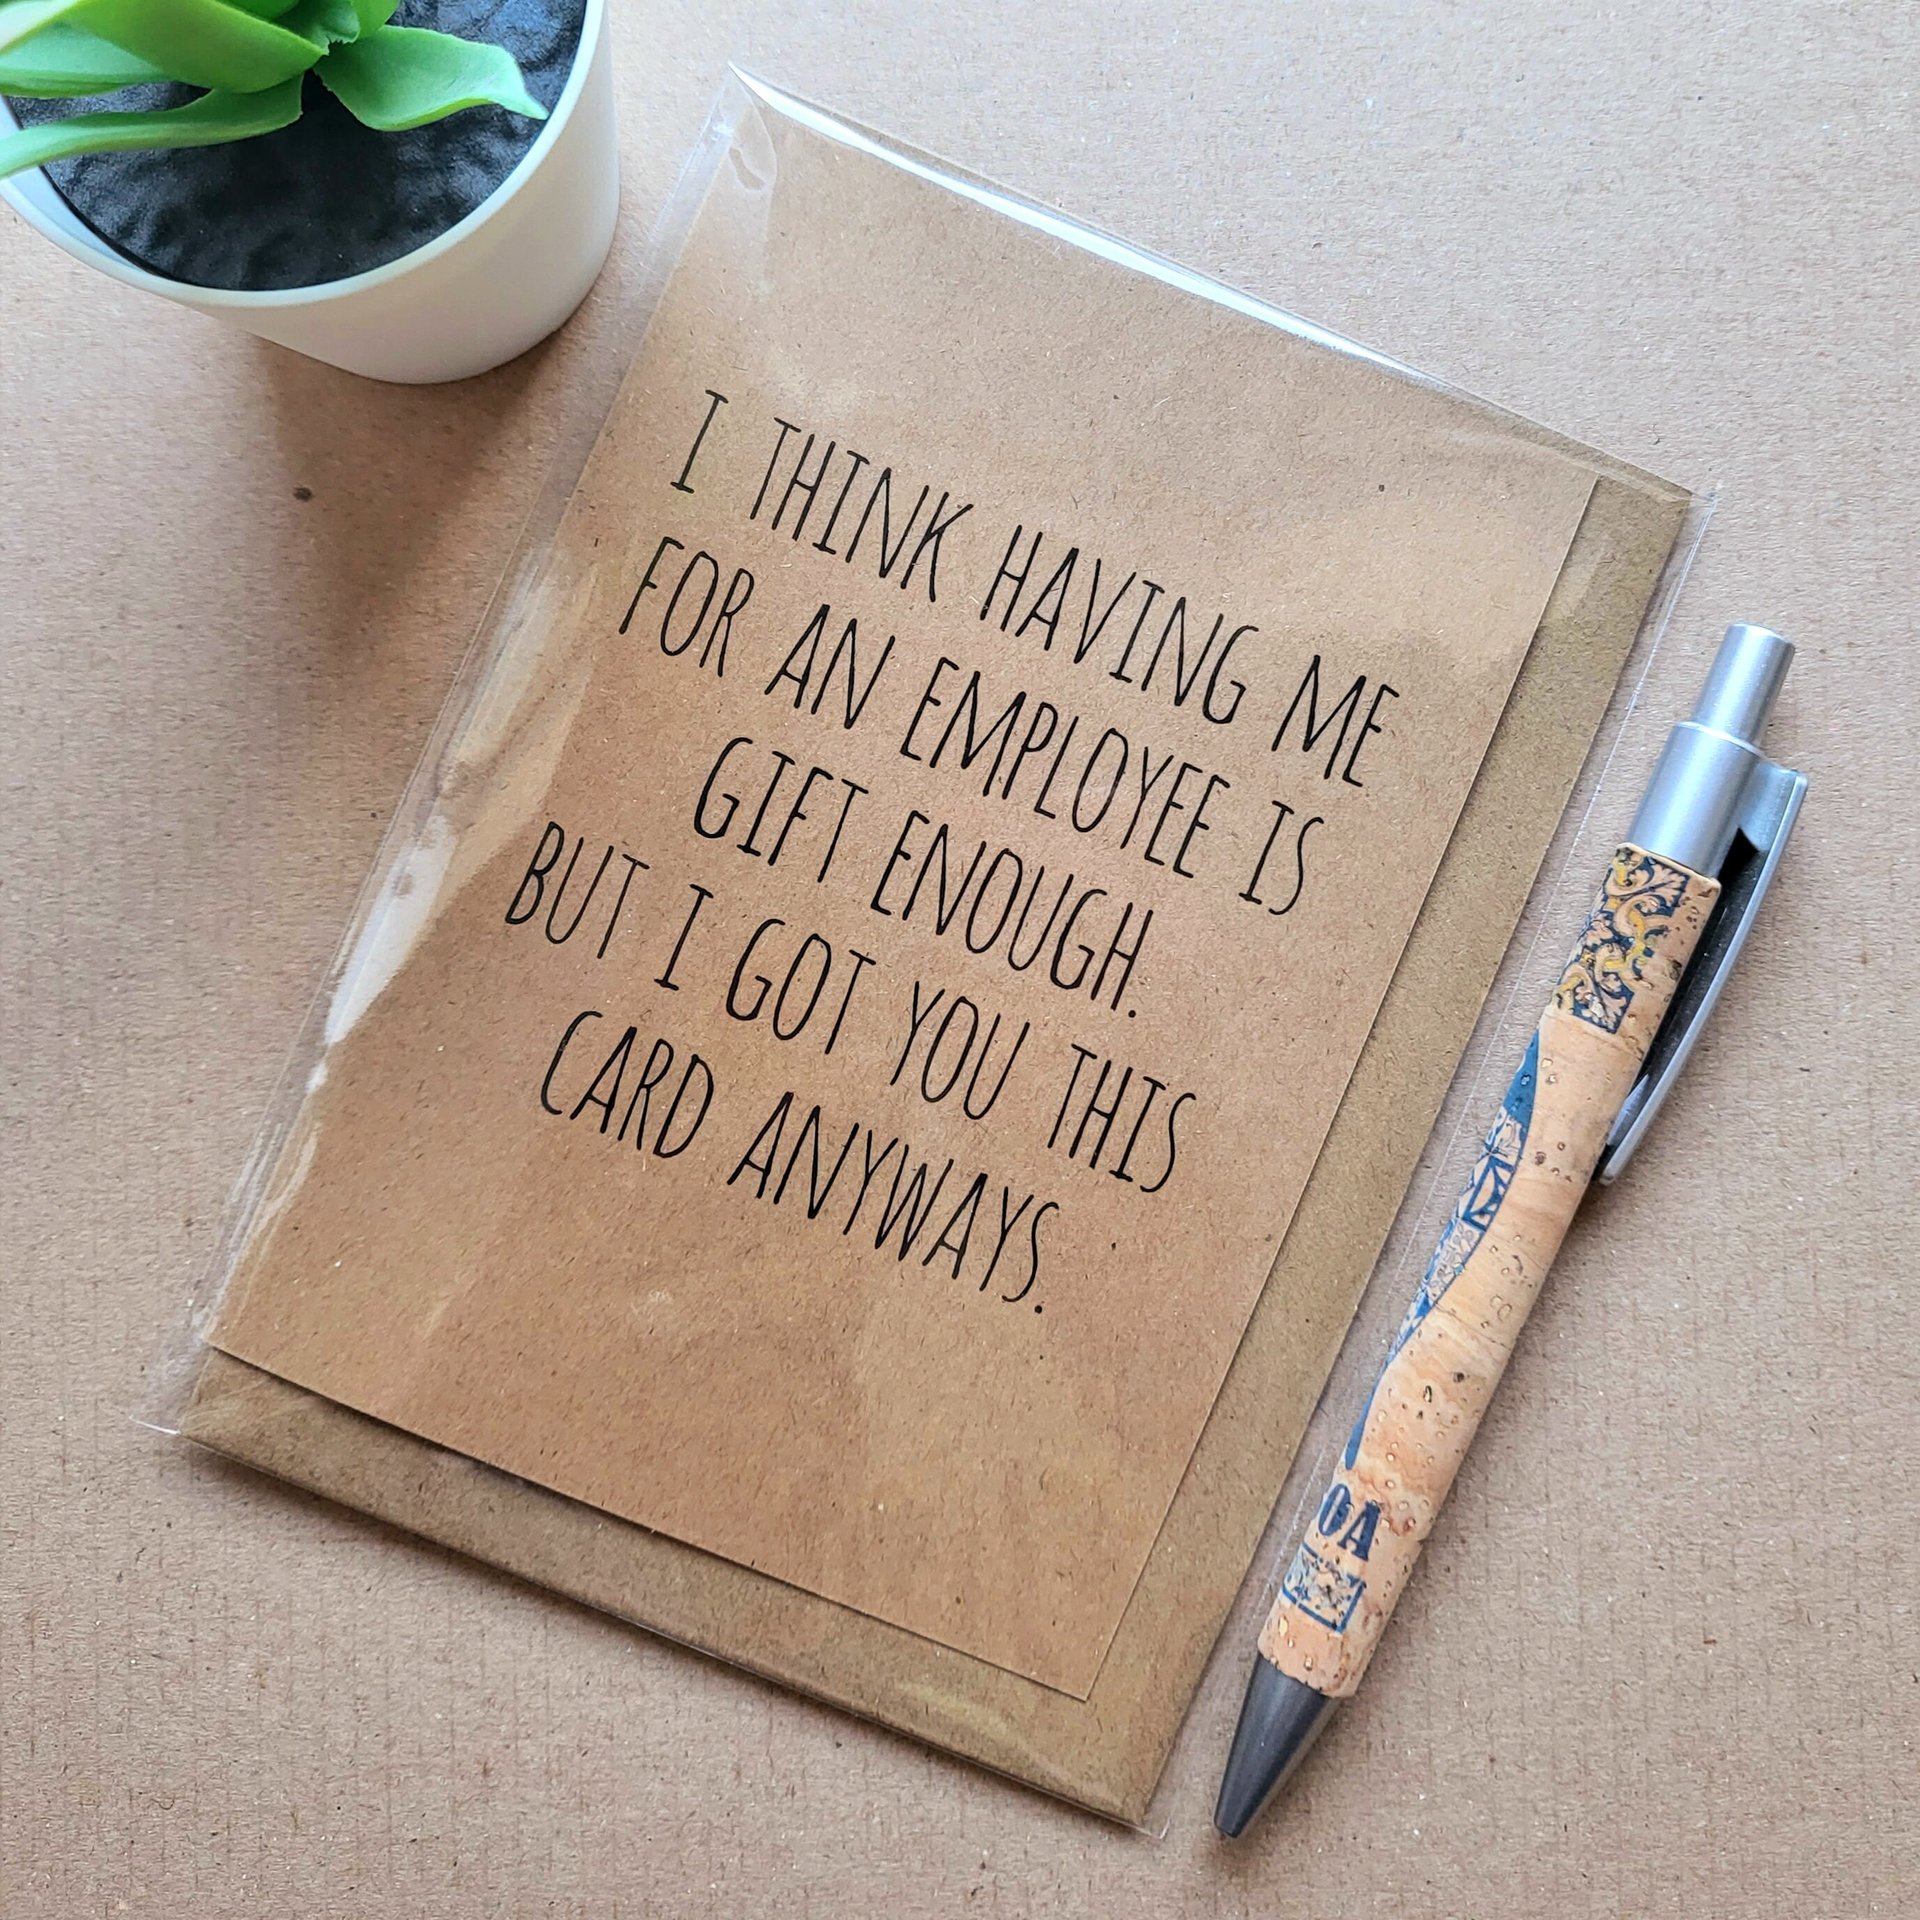 I THINK HAVING ME
FOR AN EMPLOYEE IS
GIFT ENOUGH.
BUT I GOT YOU THIS
CARD ANYWAYS.
OA